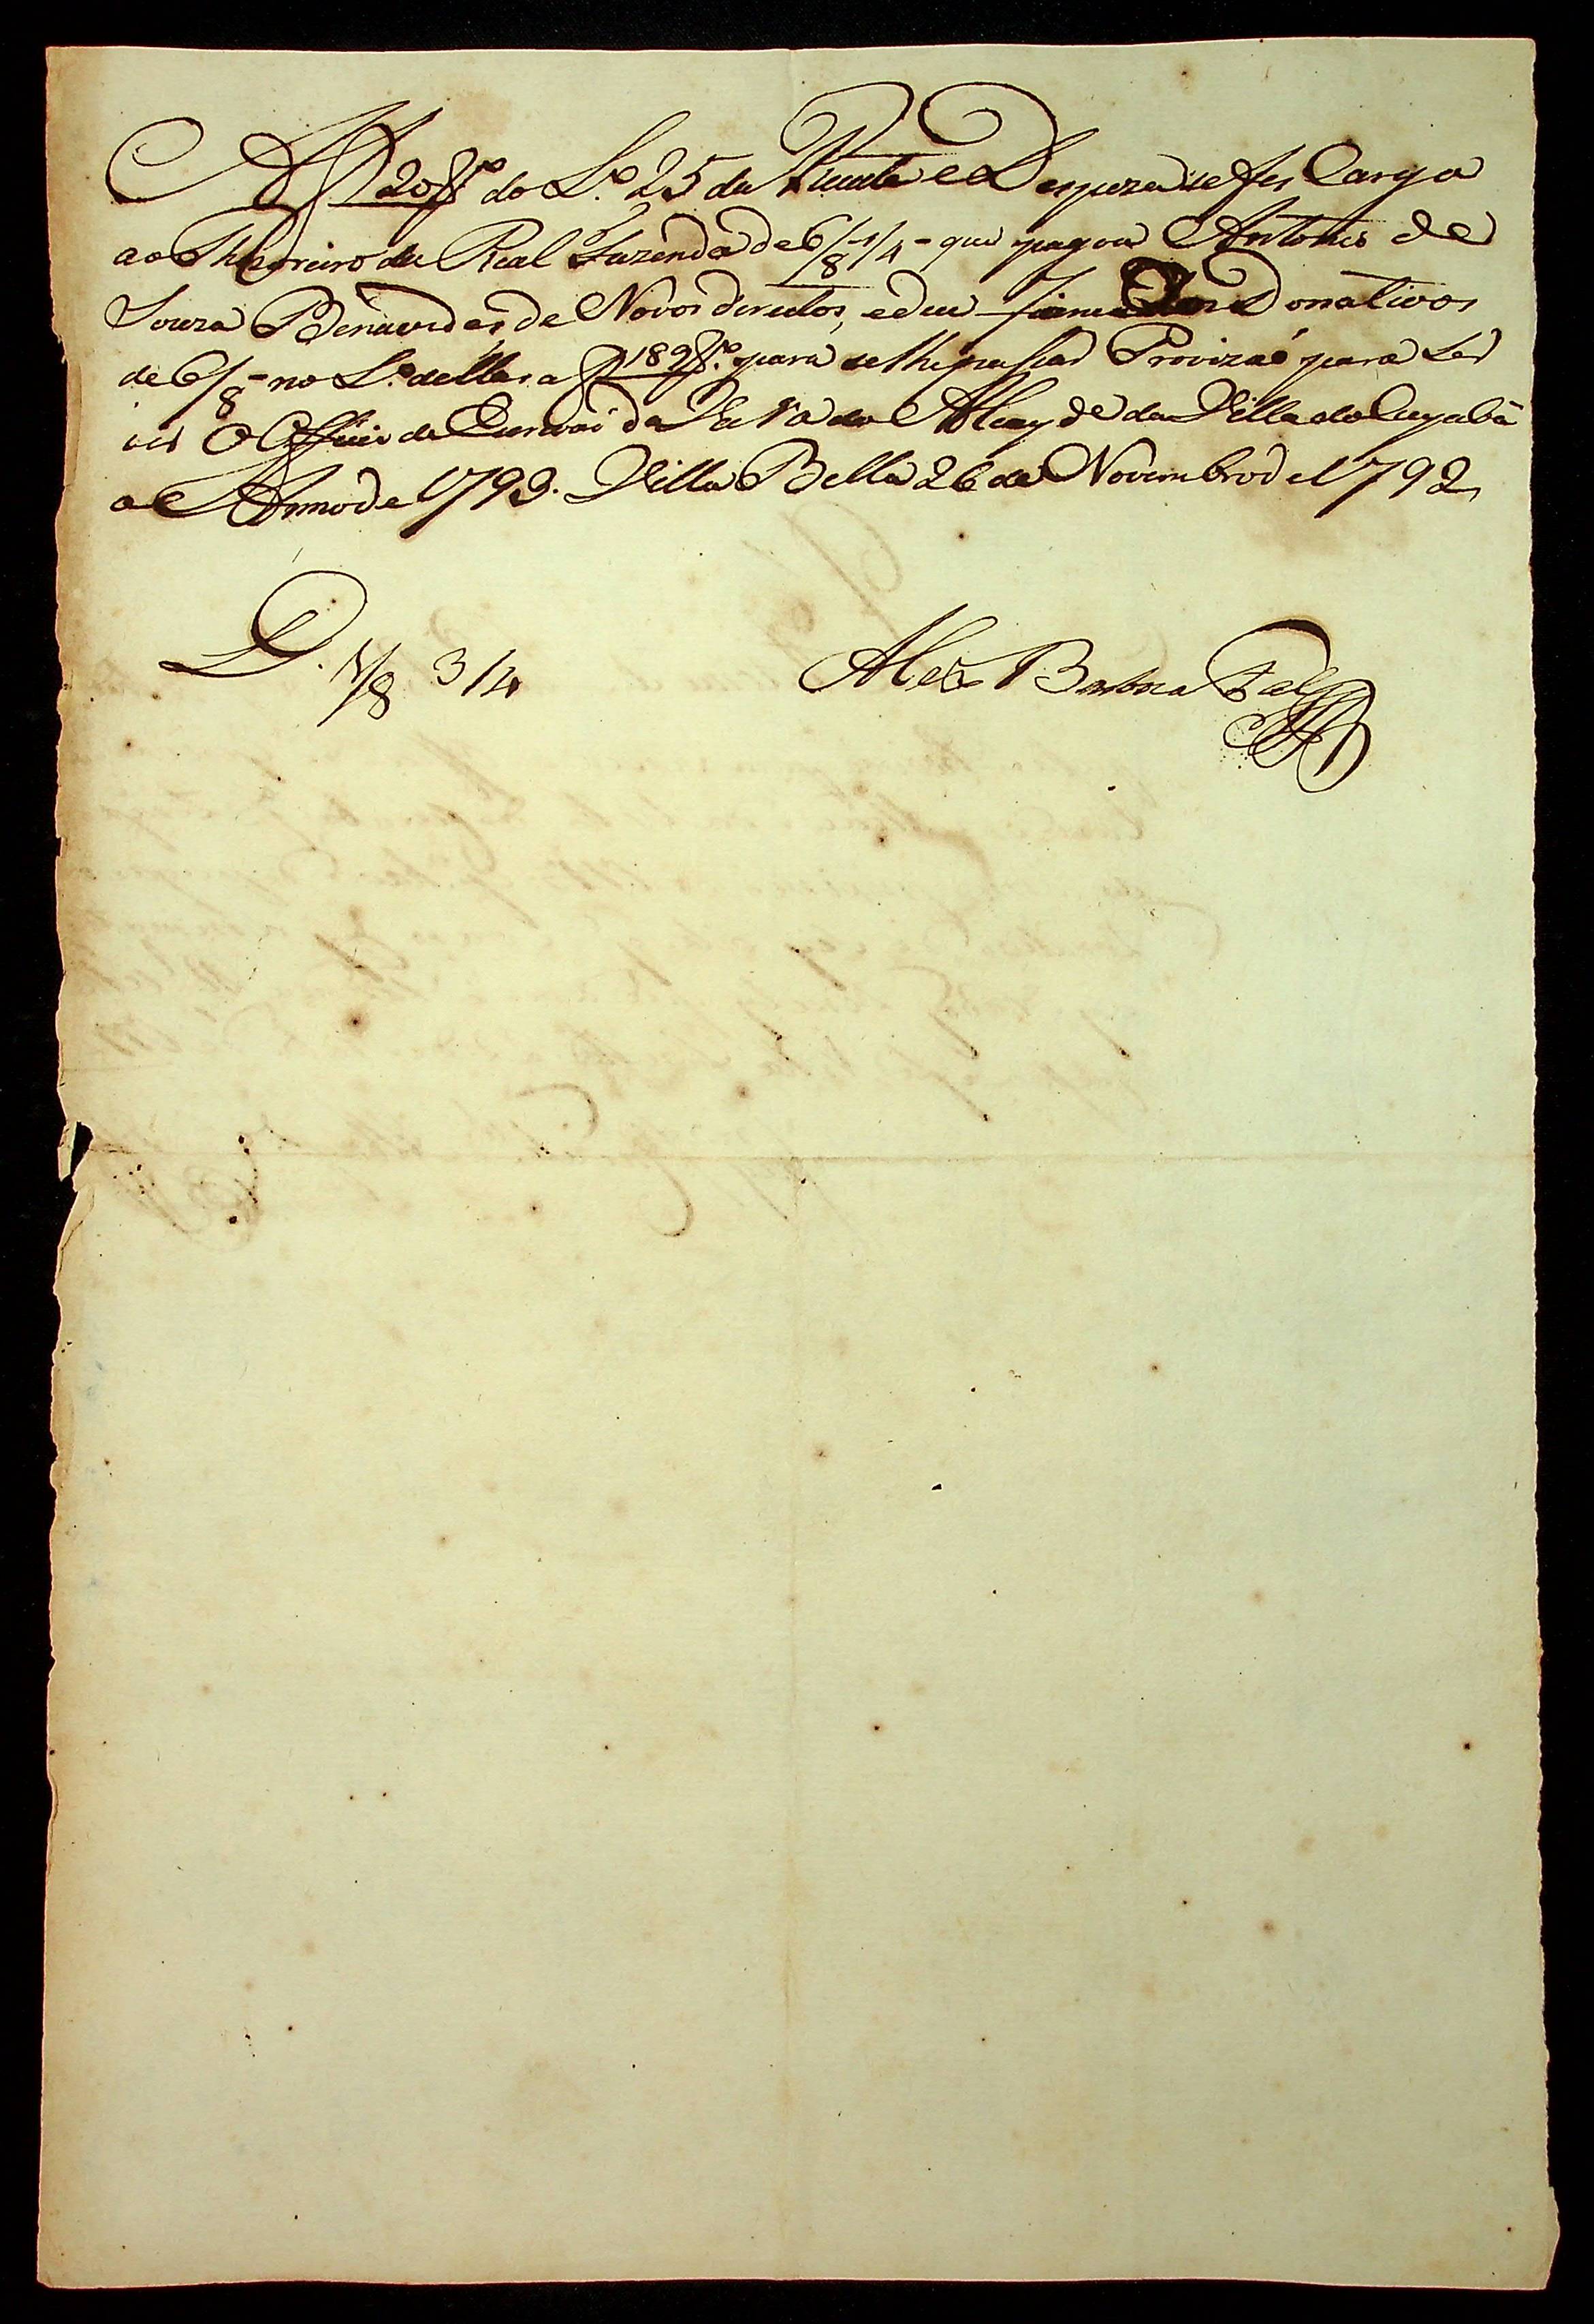 A f 208 vº do Lº 25 da Receita e Despeza se fes Carga
ao Thezoureiro da Real Fazenda de 6/8 1/4 - que pagou Antonio de
Souza Benavides de Novos direitos, e deu fiança aos Donativos
de 6/8 - no Lº delles a f 189 vº para se lhe passar Provizaõ para ser
vir o Officio de Escrivaõ da Vara do Alcayde da Villa do Cuyabá
o Anno de 1793. Villa Bella 26 de Novembro de 1792
D. 1/8 3/4
Alex Barboza